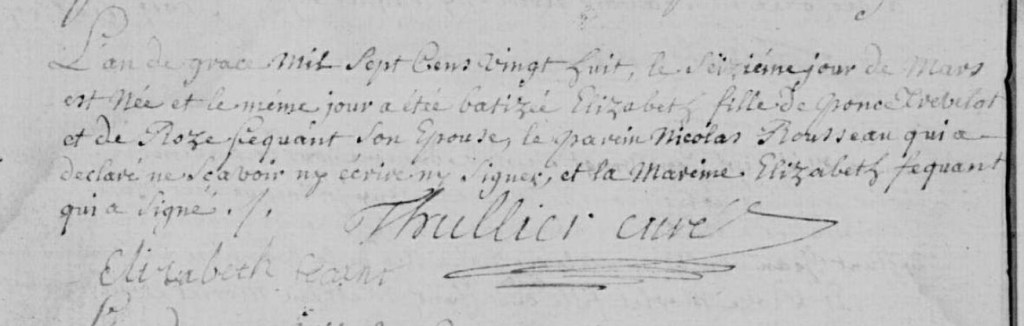 L'an de grace Mil Sept Cens Vingt huit, le Seiziéme jour de Mars
est Née et le même jour a étée batizée Elizabeth fille de Ponce Trevelot
et de Roze fequant Son Epouse, le parein Nicolas Rousseau qui a
declaré ne sçavoir ny écrire ny Signer, et la Mareine Elizabeth fequant
qui a Signé ./.
Thullier curé
Elizabeth